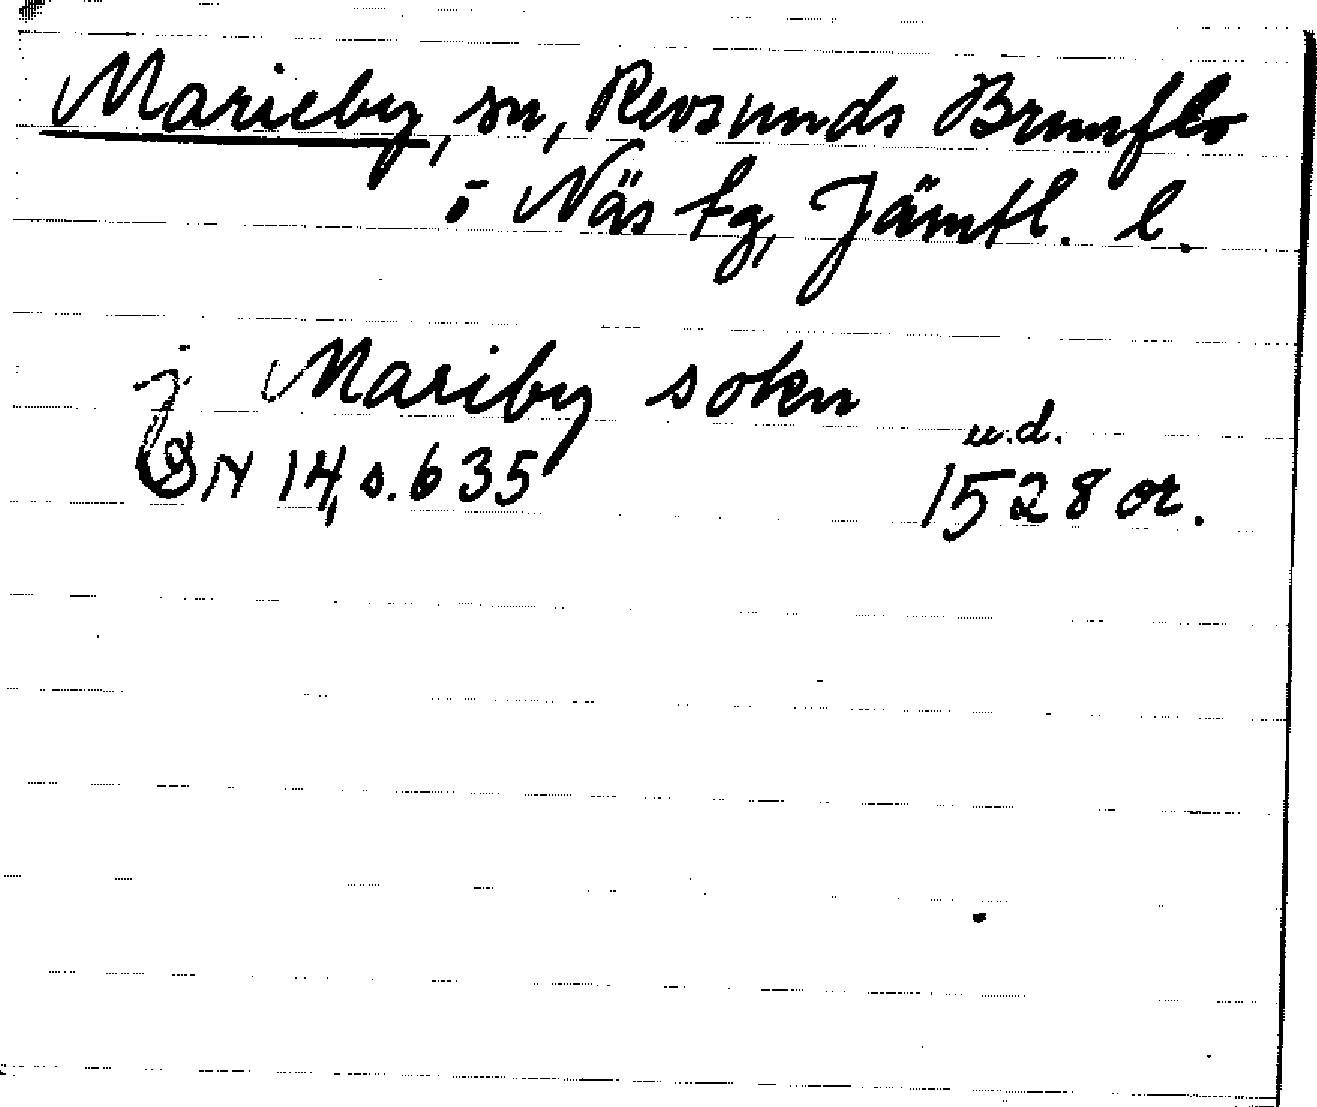 Marieby, sn, Revsunds Brunflo
o Näs tg, Jämtl. l.
j Mariby sokn
u.d.
DN 14, s. 635 1528 or.